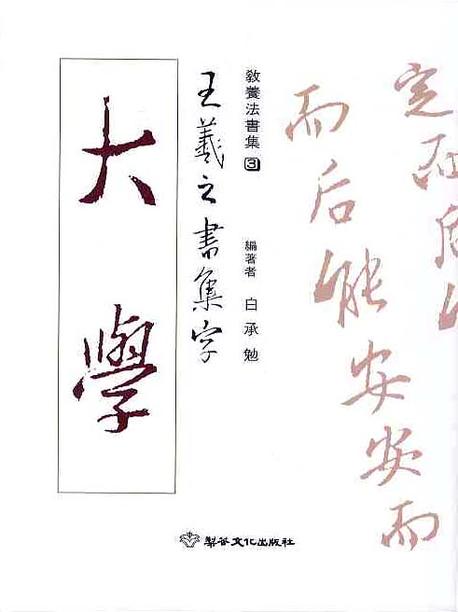 定而后
而后能安安而
敎養法書集 3
編著者 白承勉
王羲之書集字
大學
梨谷文化出版社